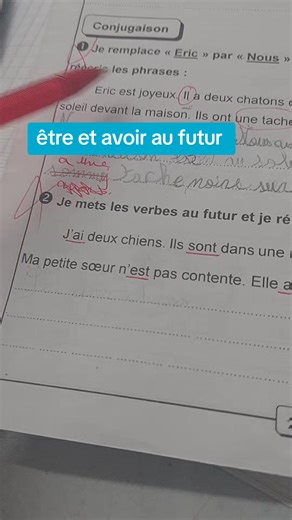 Conjugaison
❶ Je remplace « Eric » par « Nous »
les phrases :
Eric est joyeux. Il a deux chatons
soleil devant la maison. Ils ont une tache
être et avoir au futur
a une
tache noire sur
❷ Je mets les verbes au futur et je ré
J'ai deux chiens. Ils sont dans une
Ma petite sœur n'est pas contente. Elle a